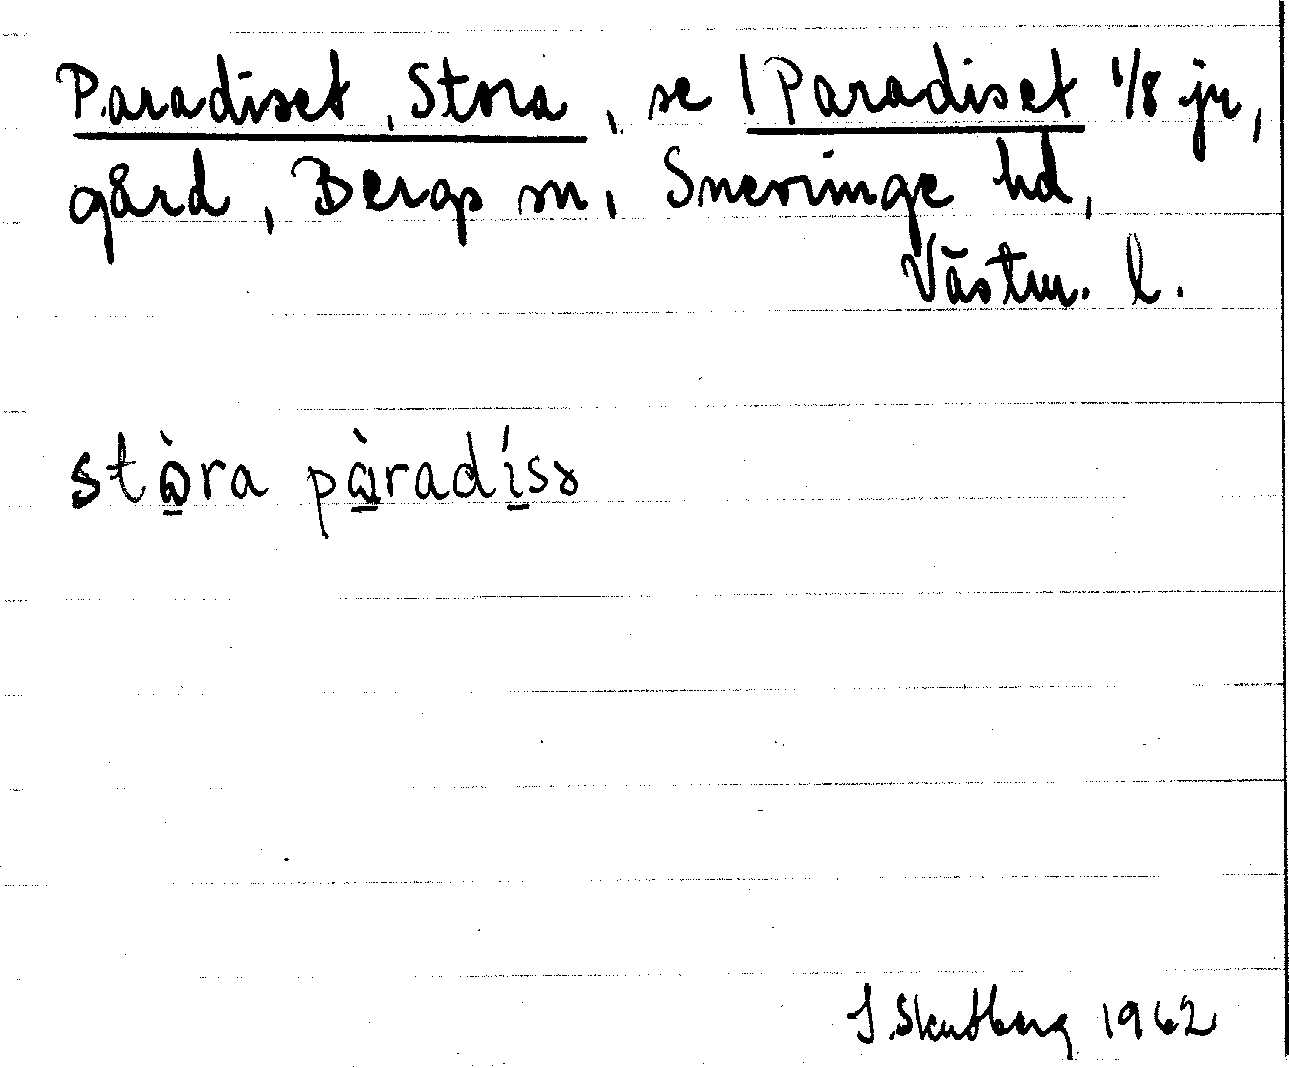 Paradiset, Stora, se 1 Paradiset 1/8 jr,
gård, Bergs sn, Snevringe hd,
Västm. l.
stòra pàradísə
J. Skutberg 1962